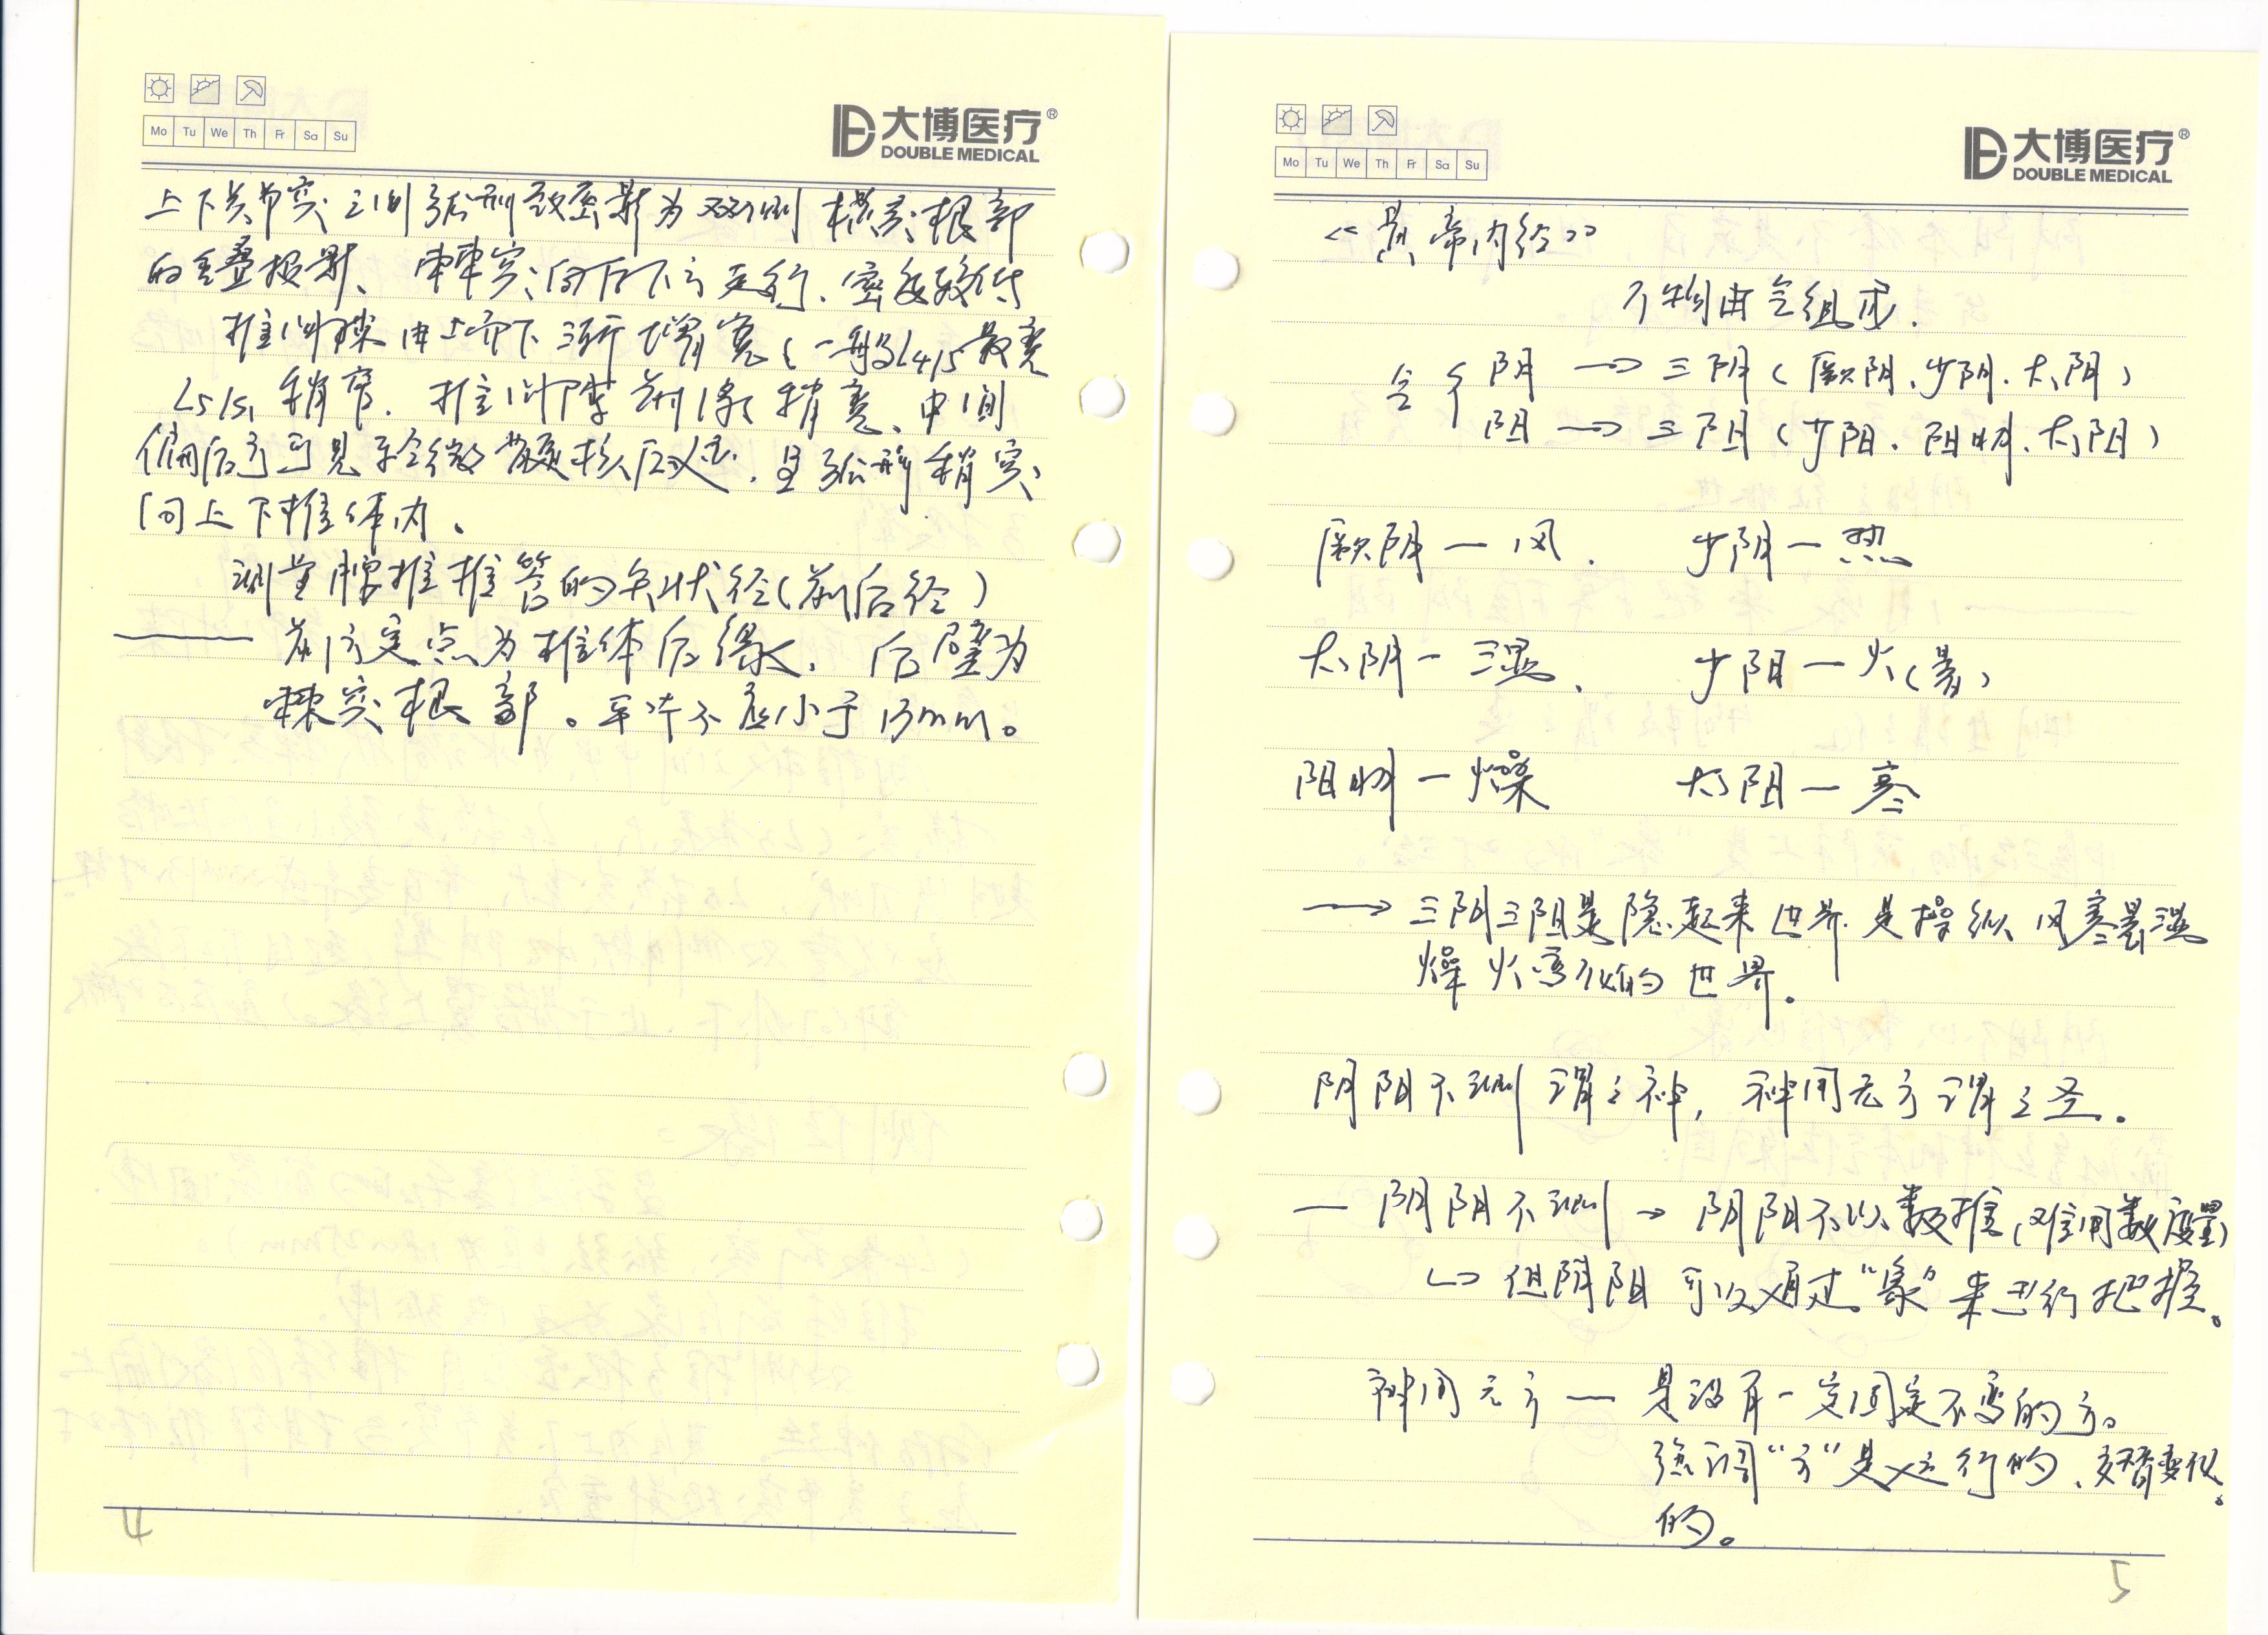 Mo Tu We Th Fr Sa Su
大博医疗®
DOUBLE MEDICAL
上下关节突之间弧形致密影为双侧横突根部
的重叠投影、棘突向后下方走行、密度较低
椎间隙由上而下渐增宽（一般L4/5最宽
L5/S1稍窄．椎间隙前缘稍宽、中间
偏后方可见轻微髓核压迹．呈弧形稍突
向上下椎体内。
测量腰椎椎管的矢状径（前后径）
—— 前方定点为椎体后缘、后壁为
棘突根部。平片不应小于15mm。
4
Mo Tu We Th Fr Sa Su
大博医疗®
DOUBLE MEDICAL
《黄帝内经》
万物由气组成．
气 { 阴 → 三阴（厥阴、少阴．太阴）
阳 → 三阳（少阳．阳明、太阳）
厥阴－风． 少阴－热
太阴－湿、 少阳－火（暑）
阳明－燥 太阳－寒
→ 三阴三阳是隐起来世界．是操纵风寒暑湿
燥火变化的世界。
阴阳不测谓之神，神用无方谓之圣。
— 阴阳不测 → 阴阳不以数推（难用数度量）
↳ 但阴阳可以通过“象”来进行把握。
神用无方 — 是没有一定固定不变的方。
强调“方”是运行的、交替变化
的。
5